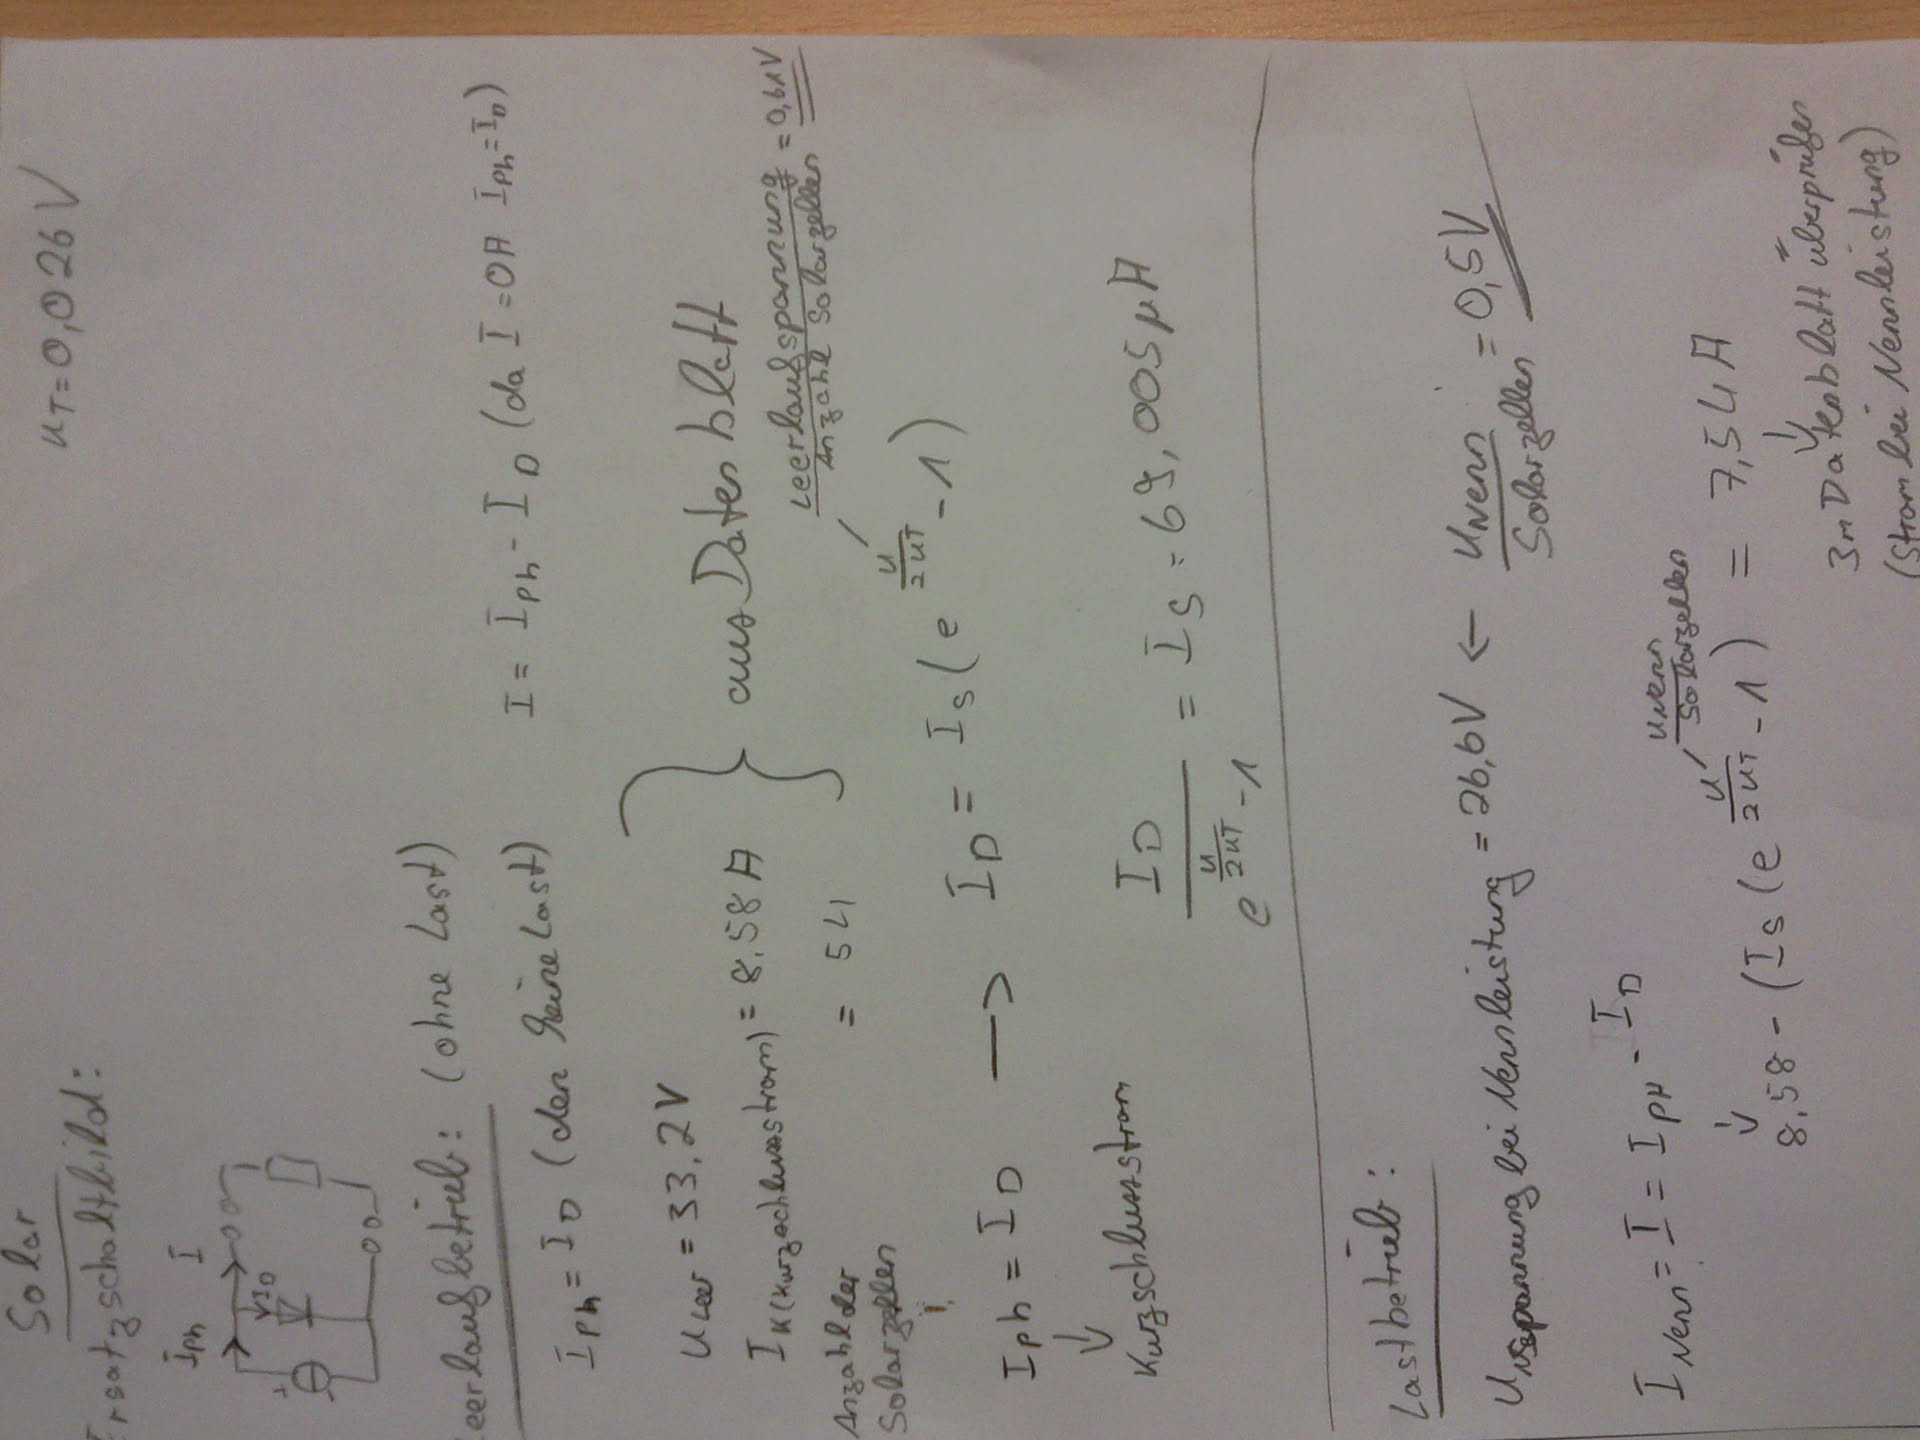 Solar
Ersatzschaltbild:
UT = 0,026V
IPh I
ID
+
Leerlaufbetrieb: (ohne Last)
IPh = ID (den keine Last)
I = IPh - ID (da I = 0A IPh = ID)
Uleer = 33,2V
IK (Kurzschlussstrom) = 8,58A
Anzahl der Solarzellen = 54
} aus Datenblatt
Leerlaufspannung / Anzahl Solarzellen = 0,61V
IPh = ID → ID = IS (e^(U/2UT) - 1)
↓
Kurzschlussstrom
ID / (e^(U/2UT) - 1) = IS = 69,005µA
Lastbetrieb:
Uspannung bei Nennleistung = 26,6V ← UNenn / Solarzellen = 0,5V
INenn = I = IPH - ID
UNenn / Solarzellen
↓
8,58 - (IS (e^(U/2UT) - 1) = 7,54A
↓
Im Datenblatt überprüfen
(Strom bei Nennleistung)